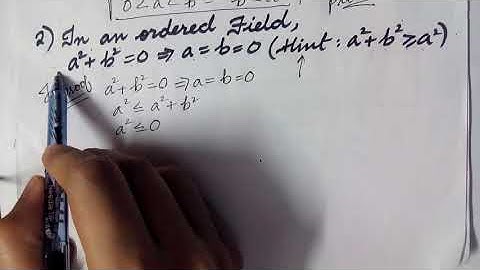 2) In an ordered Field,
a²+b²=0 ⇒ a=b=0 (Hint: a²+b²≥a²)
Proof a²+b²=0 ⇒ a=b=0
a² ≤ a²+b²
a² ≤ 0